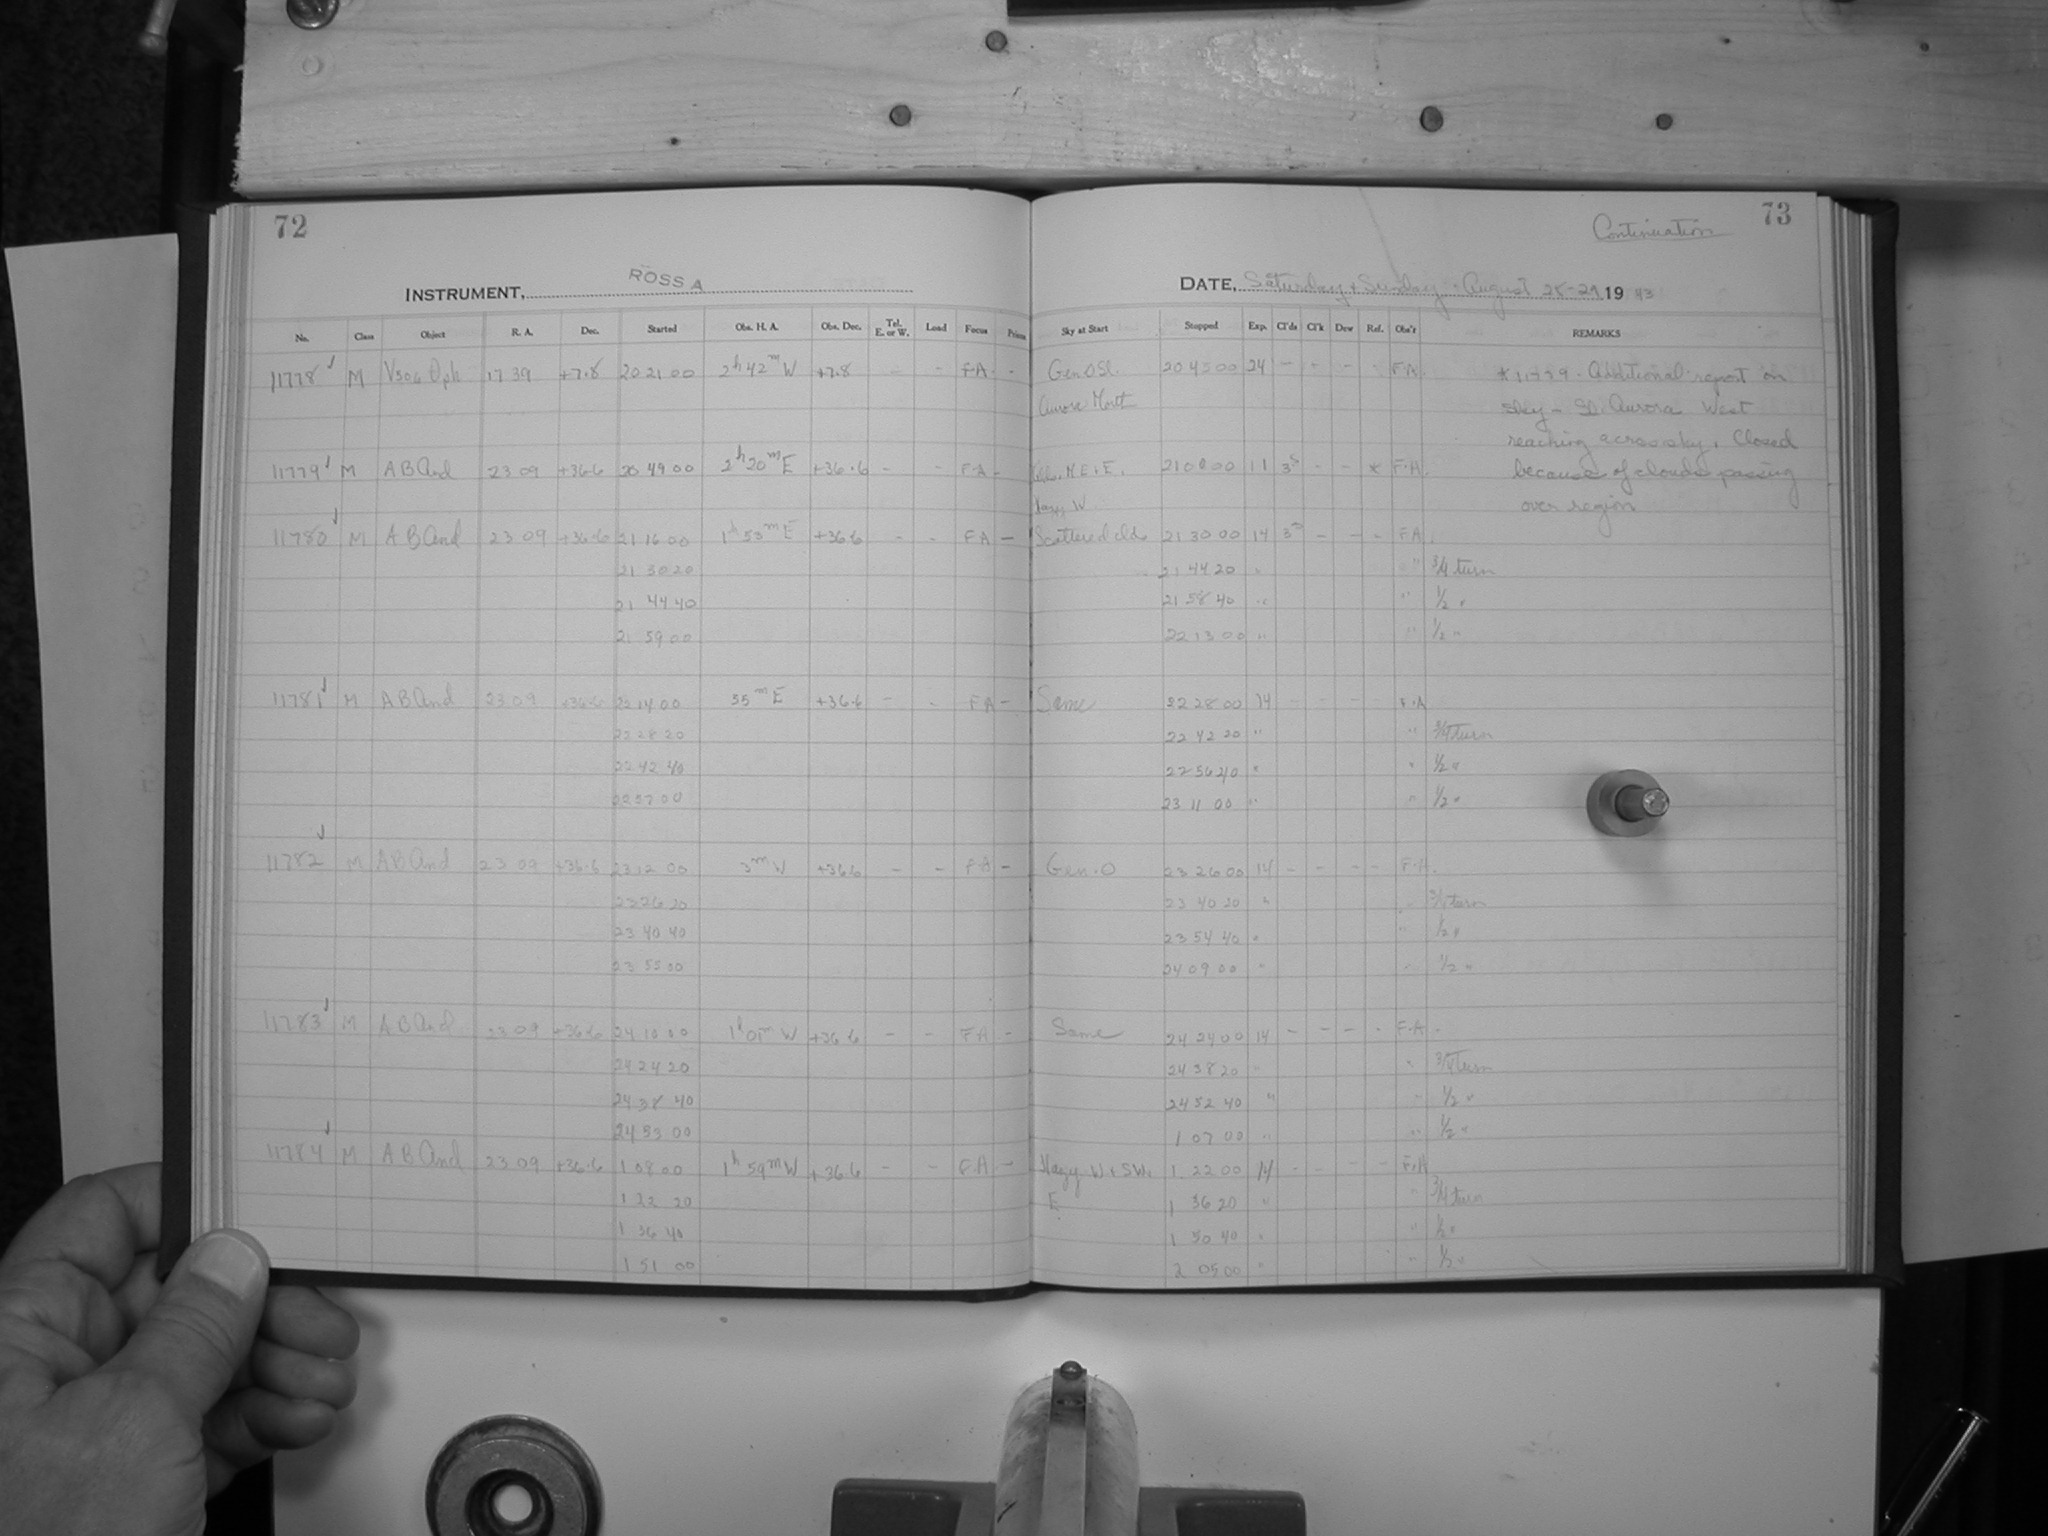 72
INSTRUMENT, ROSS A
No. Class Object R. A. Dec. Started Obs. H. A. Obs. Dec. Tel. E. or W. Load Focus Prism
11778 M V506 Oph 17 39 +7.8 20 21 00 2h 42m W +7.8 - - FA - 
11779 M AB And 23 09 +36.6 20 49 00 2h 20m E +36.6 - - FA -
11780 M AB And 23 09 +36.6 21 16 00 1h 53m E +36.6 - - FA -
21 30 20
21 44 40
21 59 00
11781 M AB And 23 09 +36.6 22 14 00 55m E +36.6 - - FA -
22 28 20
22 42 40
22 57 00
11782 M AB And 23 09 +36.6 23 12 00 3m W +36.6 - - FA -
23 26 20
23 40 40
23 55 00
11783 M AB And 23 09 +36.6 24 10 00 1h 01m W +36.6 - - FA -
24 24 20
24 38 40
24 53 00
11784 M AB And 23 09 +36.6 1 08 00 1h 59m W +36.6 - - FA -
1 22 20
1 36 40
1 51 00
73
Continuation
DATE, Saturday + Sunday - August 28-29 1943
Sky at Start Stopped Exp. Cl'ds Cl'k Dew Ref. Obs'r REMARKS
Gen. O Sl. 20 45 00 24 - - - - FA. * 11779 - Additional report on
Aurora North sky - Sl. Aurora West
reaching across sky. Closed
N.E. + E. 21 00 00 11 3s - - * F.A. because of clouds passing
Hazy W. over region
Scattered clds 21 30 00 14 3s - - - FA.
21 44 20 " " 3/4 turn
21 58 40 " " 1/2 "
22 13 00 " " 1/2 "
Same 22 28 00 14 - - - F.A
22 42 20 " " 3/4 turn
22 56 40 " " 1/2 "
23 11 00 " " 1/2 "
Gen. O 23 26 00 14 - - - - F.A.
23 40 20 " " 3/4 turn
23 54 40 " " 1/2 "
24 09 00 " " 1/2 "
Same 24 24 00 14 - - - - F.A -
24 38 20 " " 3/4 turn
24 52 40 " " 1/2 "
1 07 00 " " 1/2 "
Hazy W + SW. 1 22 00 14 - - - - F.A
E 1 36 20 " " 3/4 turn
1 50 40 " " 1/2 "
2 05 00 " " 1/2 "